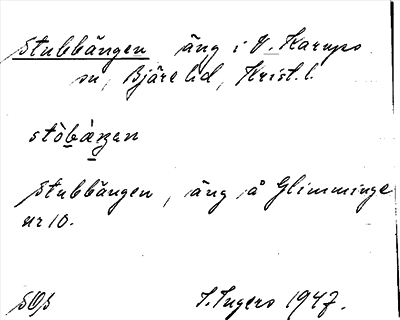 Stubbängen äng i V. Karups
sn, Bjäre hd, Krist. l.
stòbàŋen
Stubbängen, äng å Glimminge
nr 10.
SOS
I. Ingers 1947.